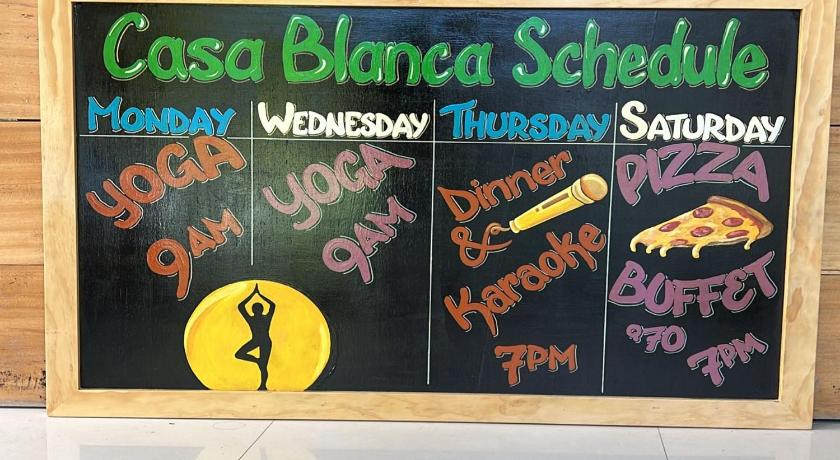 Casa Blanca Schedule
MONDAY
YOGA
9AM
WEDNESDAY
YOGA
9AM
THURSDAY
Dinner
&
Karaoke
7PM
SATURDAY
PIZZA
BUFFET
7PM